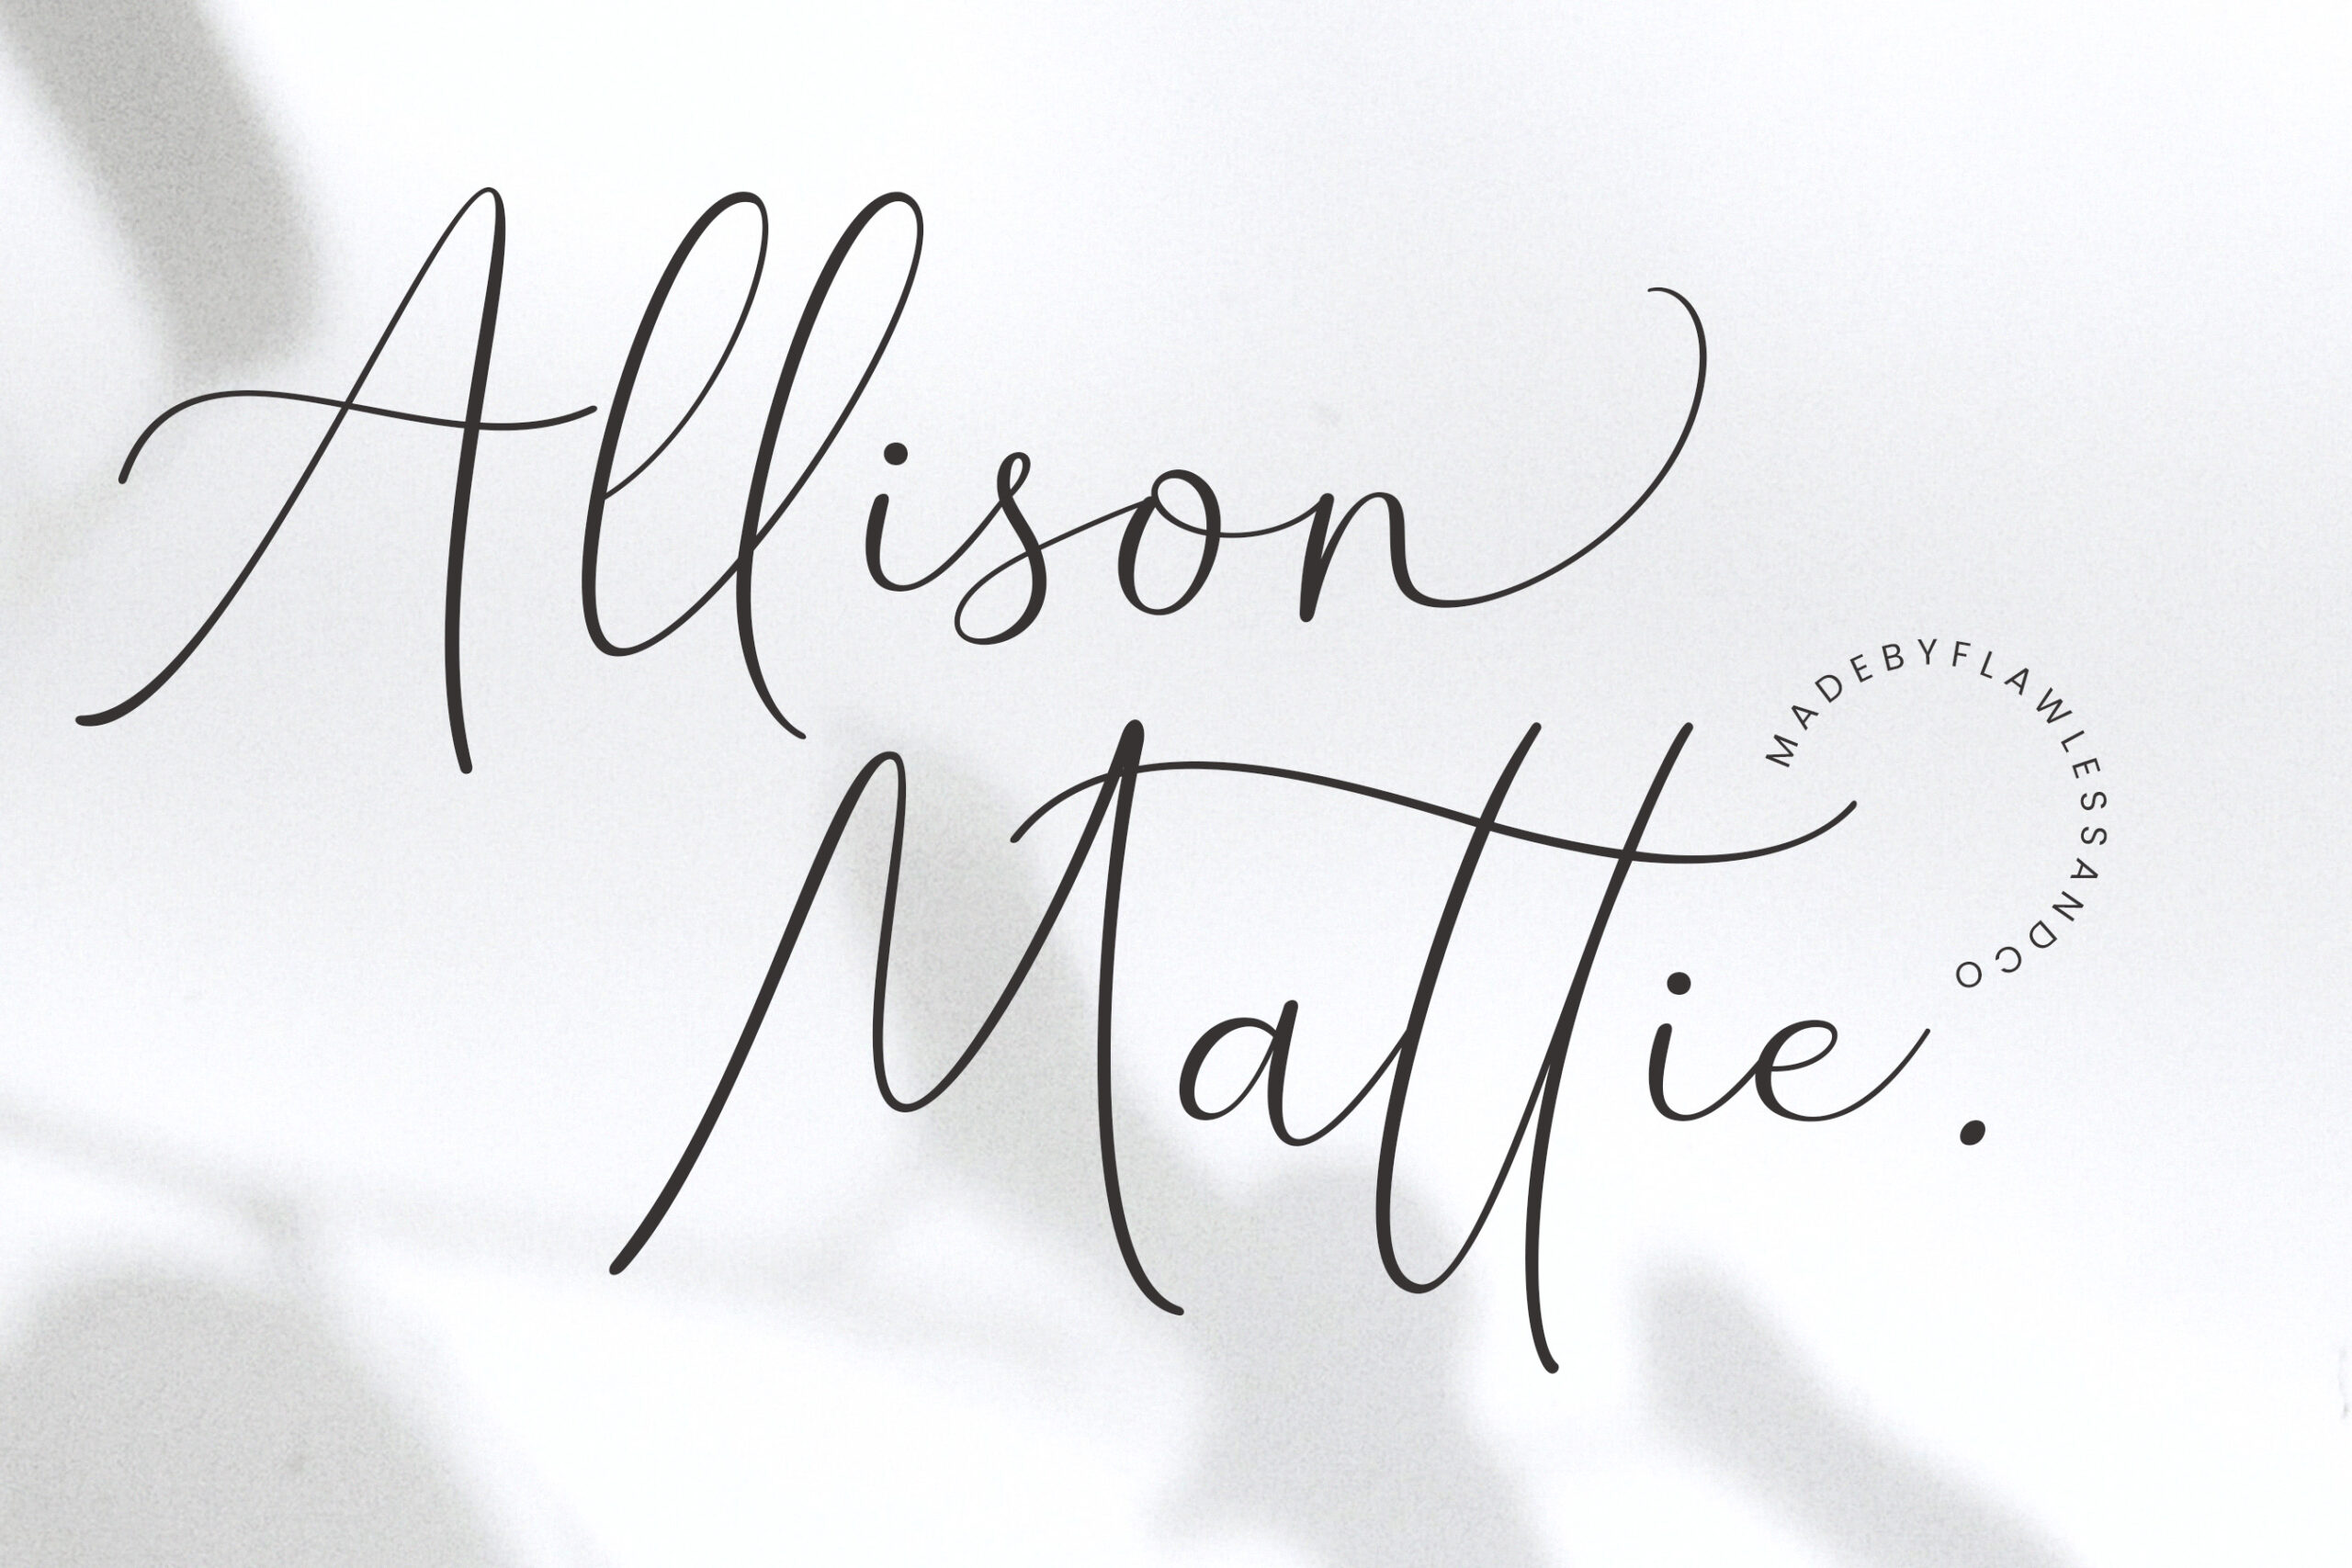 Allison
Mattie.
MADEBYFLAWLESSANDCO